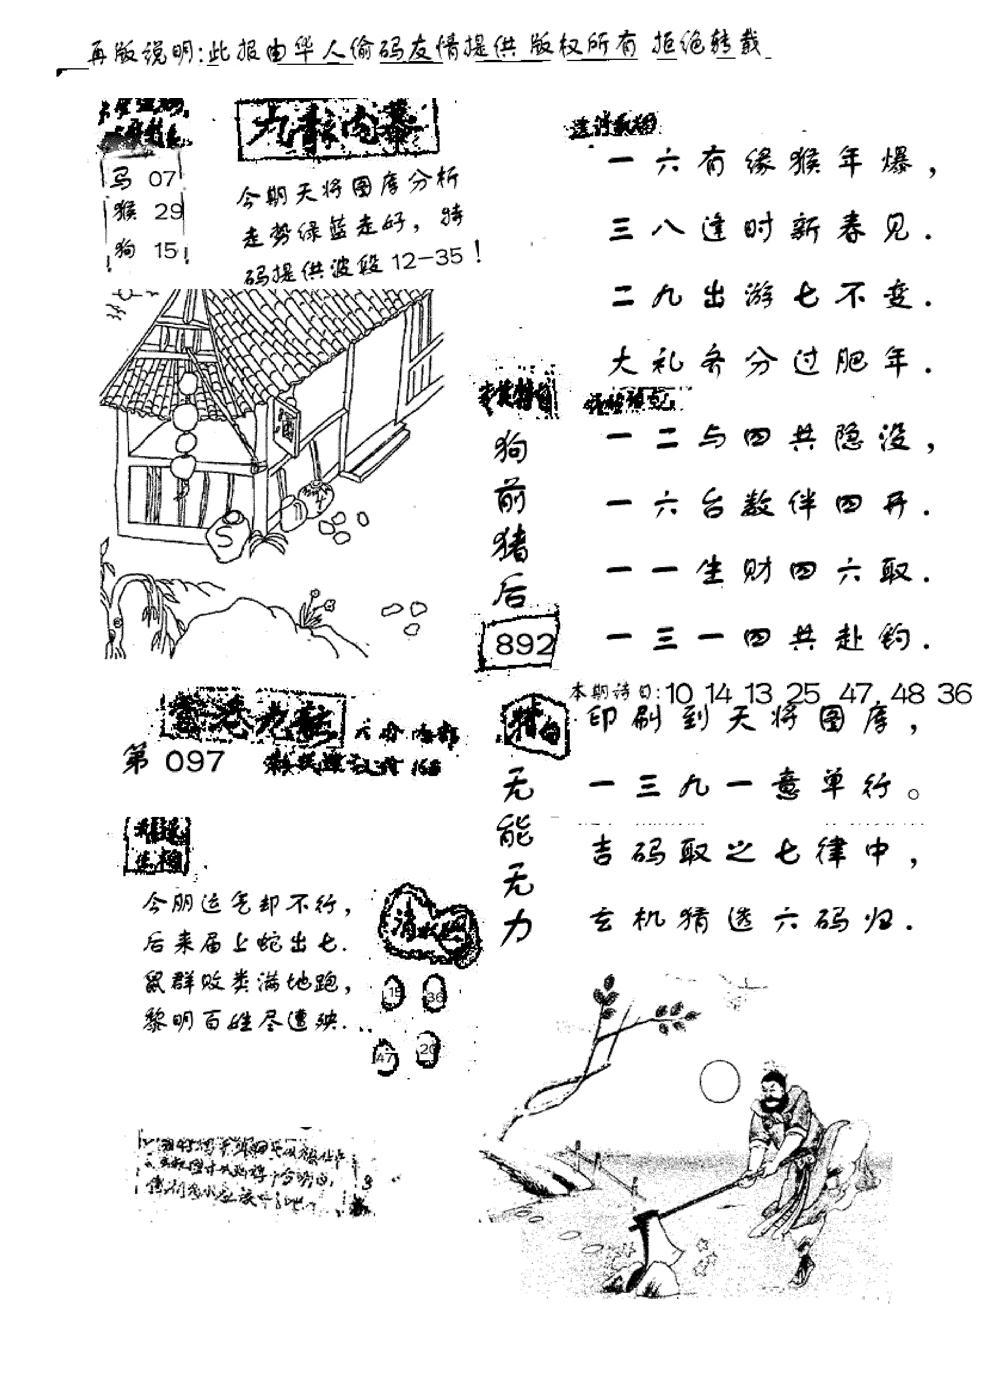 再版说明:此报由华人偷码友情提供 版权所有 拒绝转载
九龍内幕
马 07
猴 29
狗 15
今期天将图库分析
走势绿蓝走好，特
码提供波段12-35！
一六有缘猴年爆，
三八逢时新春见.
二九出游七不变.
大礼务分过肥年.
一二与四共隐没，
一六台数伴四开.
一一生财四六取.
一三一四共赴钓.
狗前猪后
892
酒
本期诗句:10 14 13 25 47 48 36
印刷到天将图库，
一三九一意单行。
吉码取之七律中，
玄机猜选六码归.
特句
无能无力
香港九龍
第 097
今朋运气却不行，
后来届上蛇出七.
鼠群败类满地跑，
黎明百姓尽遭殃...
15 36
47 20